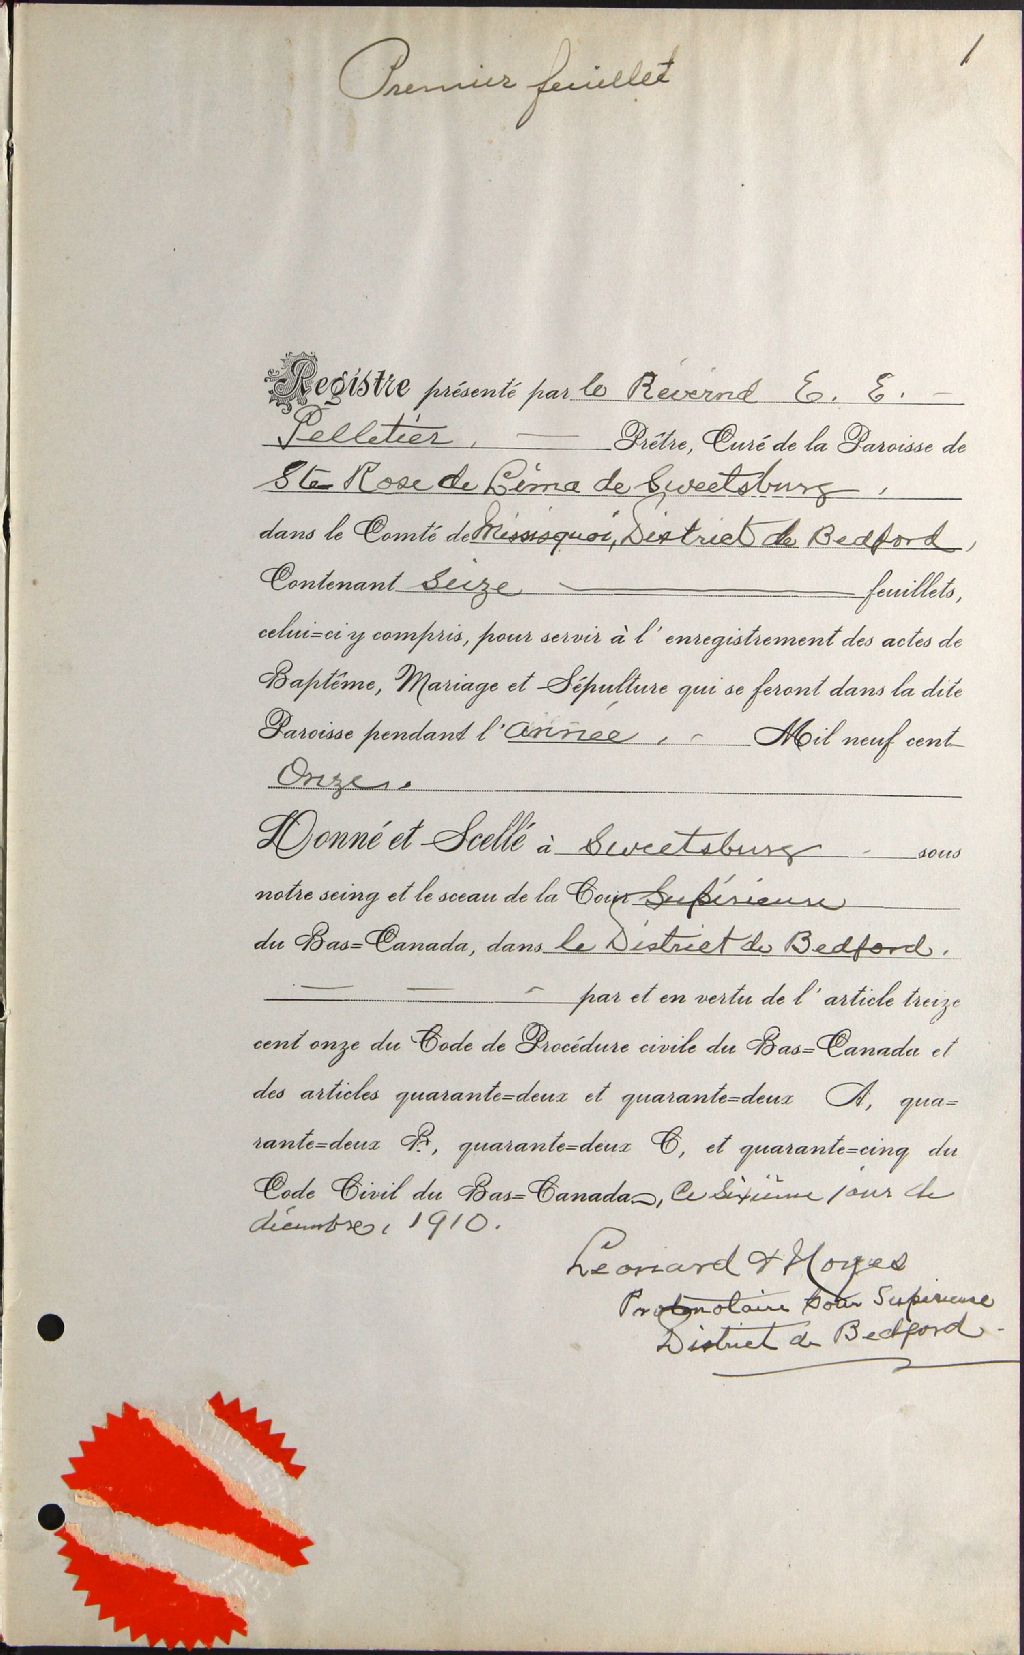 1
Premier feuillet
Registre présenté par le Révérnd E. E. —
Pelletier, — Prêtre, Curé de la Paroisse de
Ste Rose de Lima de Sweetsburg,
dans le Comté de Missisquoi, District de Bedford,
Contenant Seize — feuillets,
celui=ci y compris, pour servir à l'enregistrement des actes de
Baptême, Mariage et Sépulture qui se feront dans la dite
Paroisse pendant l'année, - Mil neuf cent
Onze.
Donné et Scellé à Sweetsburg - sous
notre seing et le sceau de la Cour Supérieure
du Bas=Canada, dans le District de Bedford.
— — - par et en vertu de l'article treize
cent onze du Code de Procédure civile du Bas=Canada et
des articles quarante=deux et quarante=deux A, qua=
rante=deux B, quarante=deux C, et quarante=cinq du
Code Civil du Bas=Canada, ce Sixième jour de
décembre, 1910.
Leonard & Noyes
Protonotaire Cour Supérieure
District de Bedford -